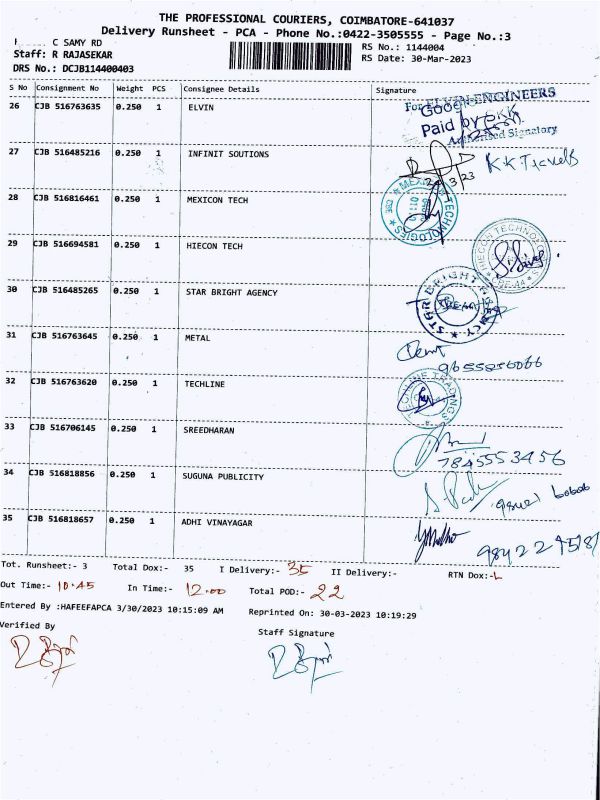 THE PROFESSIONAL COURIERS, COIMBATORE-641037
Delivery Runsheet - PCA - Phone No.:0422-3505555 - Page No.:3
C SAMY RD
RS No.: 1144004
Staff: R RAJASEKAR
RS Date: 30-Mar-2023
DRS No.: DCJB114400403
S No Consignment No Weight PCS Consignee Details Signature
26 CJB 516763635 0.250 1 ELVIN
For ELVIN ENGINEERS
Paid by
Authorised Signatory
27 CJB 516485216 0.250 1 INFINIT SOUTIONS
KK Travels
28 CJB 516816461 0.250 1 MEXICON TECH
29 CJB 516694581 0.250 1 HIECON TECH
HIECON TECHNOLOGIES
30 CJB 516485265 0.250 1 STAR BRIGHT AGENCY
STAR BRIGHT AGENCY
31 CJB 516763645 0.250 1 METAL
32 CJB 516763620 0.250 1 TECHLINE
33 CJB 516706145 0.250 1 SREEDHARAN
7845553456
34 CJB 516818856 0.250 1 SUGUNA PUBLICITY
35 CJB 516818657 0.250 1 ADHI VINAYAGAR
Tot. Runsheet:- 3 Total Dox:- 35 I Delivery:- 35 II Delivery:- RTN Dox:-
Out Time:- 10.45 In Time:- 12.00 Total POD:- 22
Entered By :HAFEEFAPCA 3/30/2023 10:15:09 AM Reprinted On: 30-03-2023 10:19:29
Verified By
Staff Signature